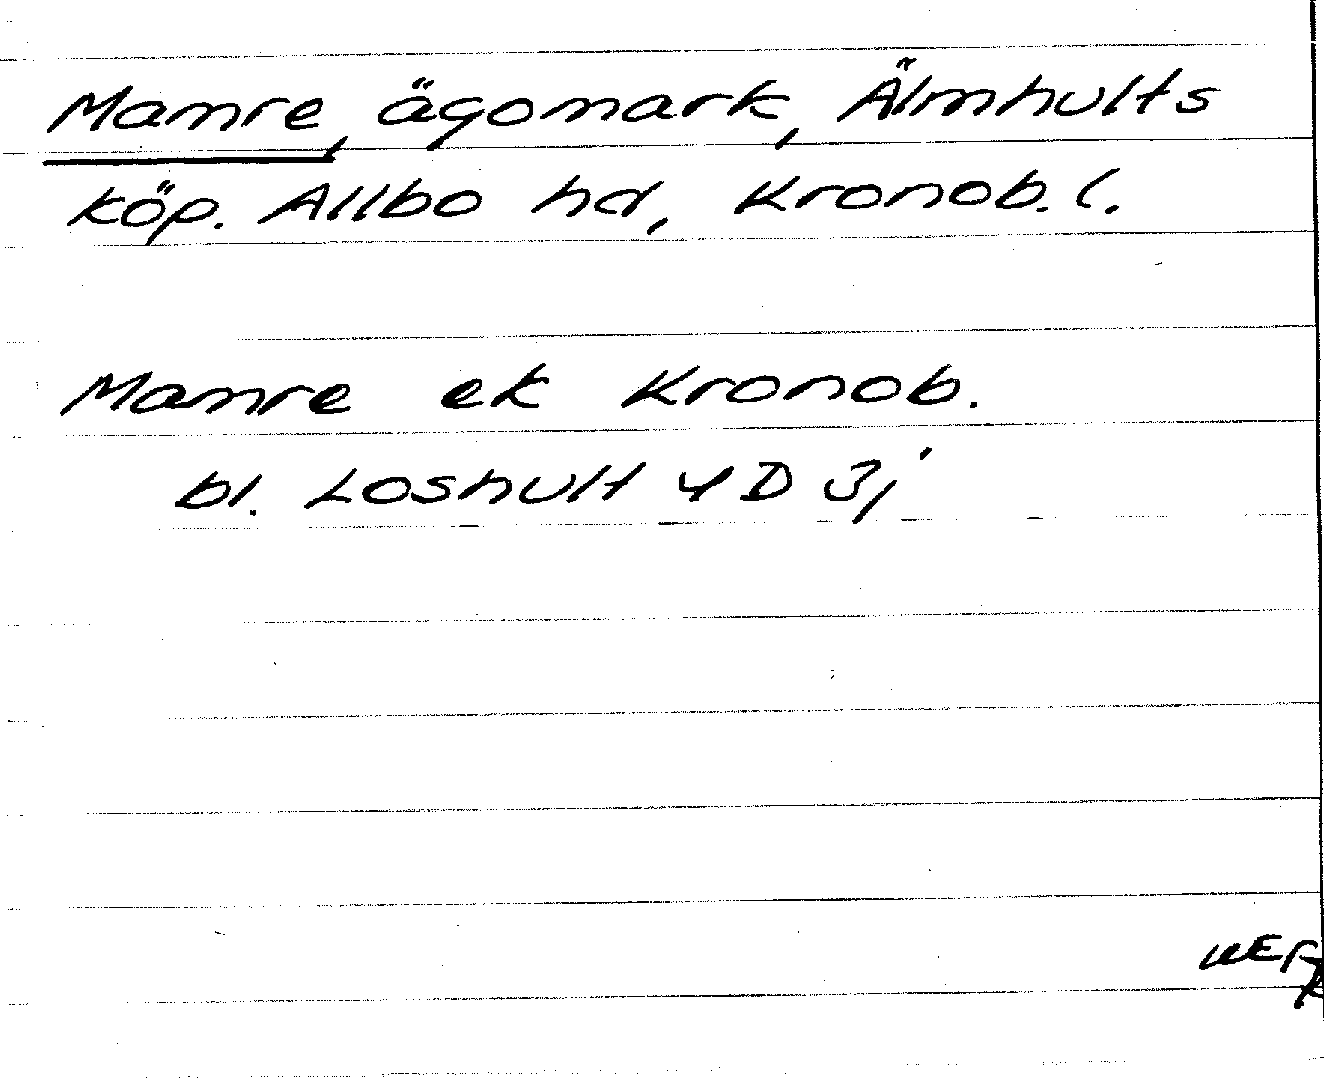 Mamre, ägomark, Älmhults
köp. Allbo hd, Kronob. l.
Mamre ek Kronob.
bl. Loshult 4D 3j